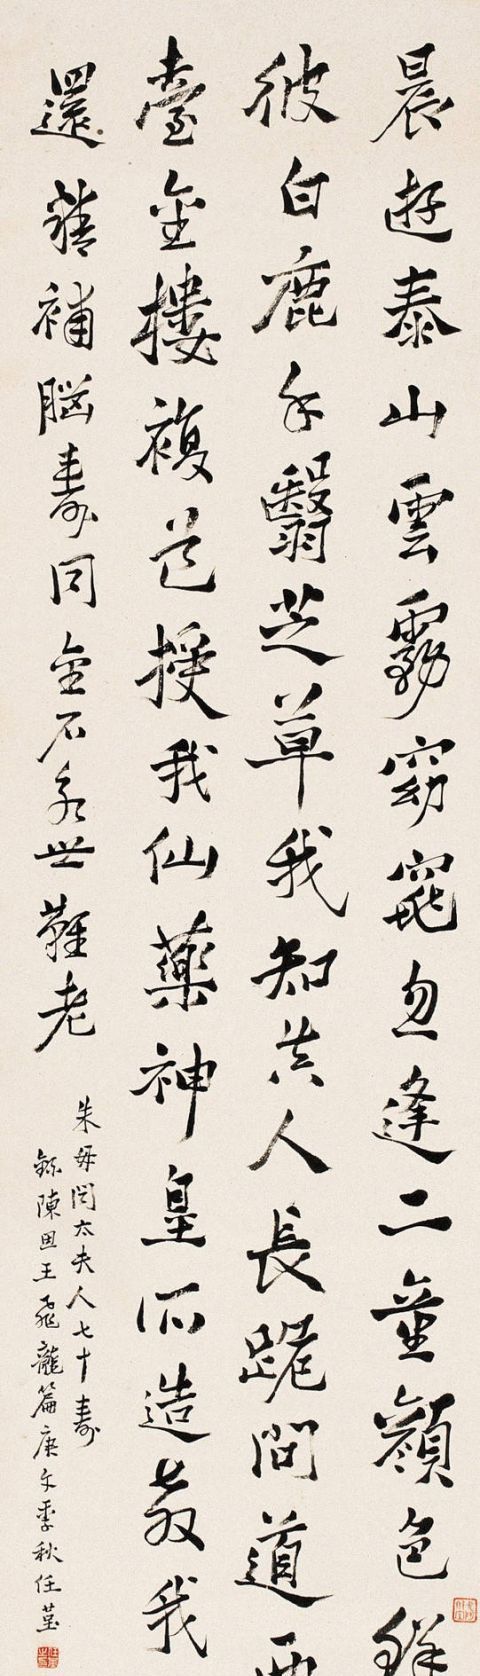 晨遊泰山雲霧窈窕忽逢二童顏色鮮
彼白鹿手翳芝草我知真人長跪問道西
臺金樓複道授我仙藥神皇所造教我
還精補脳壽同金石永世難老
朱母閔太夫人七十壽
錄陳思王飛龍篇庚午季秋任堇